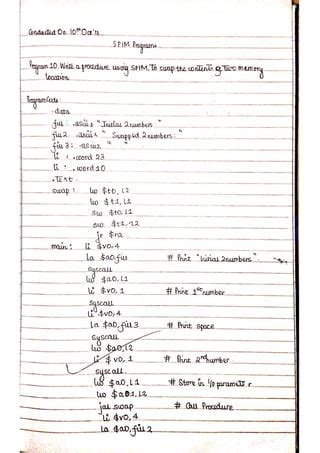 Conducted On: 10th Oct'
SPIM Programs
Program 10. Write a procedure using SPIM, to swap the contents of two memory
location
Program Code
.data
.asciiz "Initial 2 numbers: "
.asciiz "Swapped 2 numbers: "
3: .asciiz " "
: .word 23
: .word 10
.text
swap: lw $t0, l2
lw $t1, l1
sw $t0, l1
sw $t1, l2
jr $ra
main: li $v0, 4
la $a0, fu1 # Print "Initial 2 numbers".
syscall
lw $a0, l1
li $v0, 1 # Print 1st number
syscall
li $v0, 4
la $a0, fu13 # Print space
syscall
lw $a0, l2
li $v0, 1 # Print 2nd number
syscall
lw $a0, l1 # Store in parameter
lw $a1, l2
jal swap # Call Procedure
li $v0, 4
la $a0, fu12